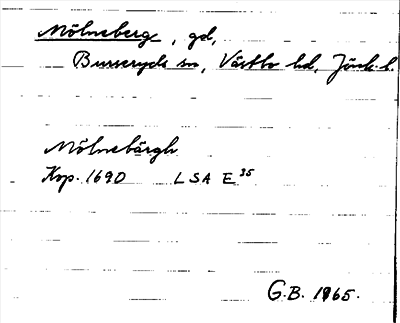 Mölneberg, gd,
Burseryds sn, Västbo hd, Jönk. l.
Mölnebärgh
Kop. 1690 LSA E 35
G.B. 1965.